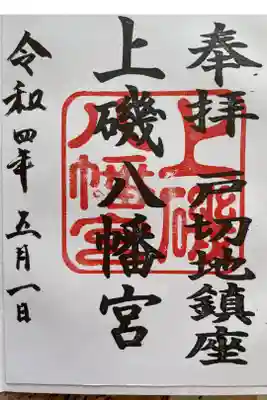 奉拝 戸切地鎮座
上磯八幡宮
令和四年 五月一日
上磯八幡宮